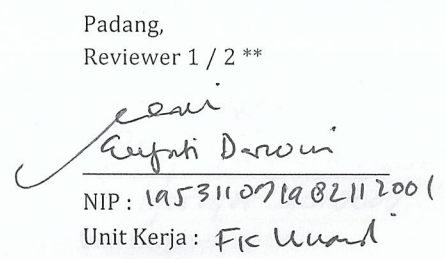 Padang,
Reviewer 1 / 2 **
Eryati Darwin
NIP : 195311071982112001
Unit Kerja : FK Unand